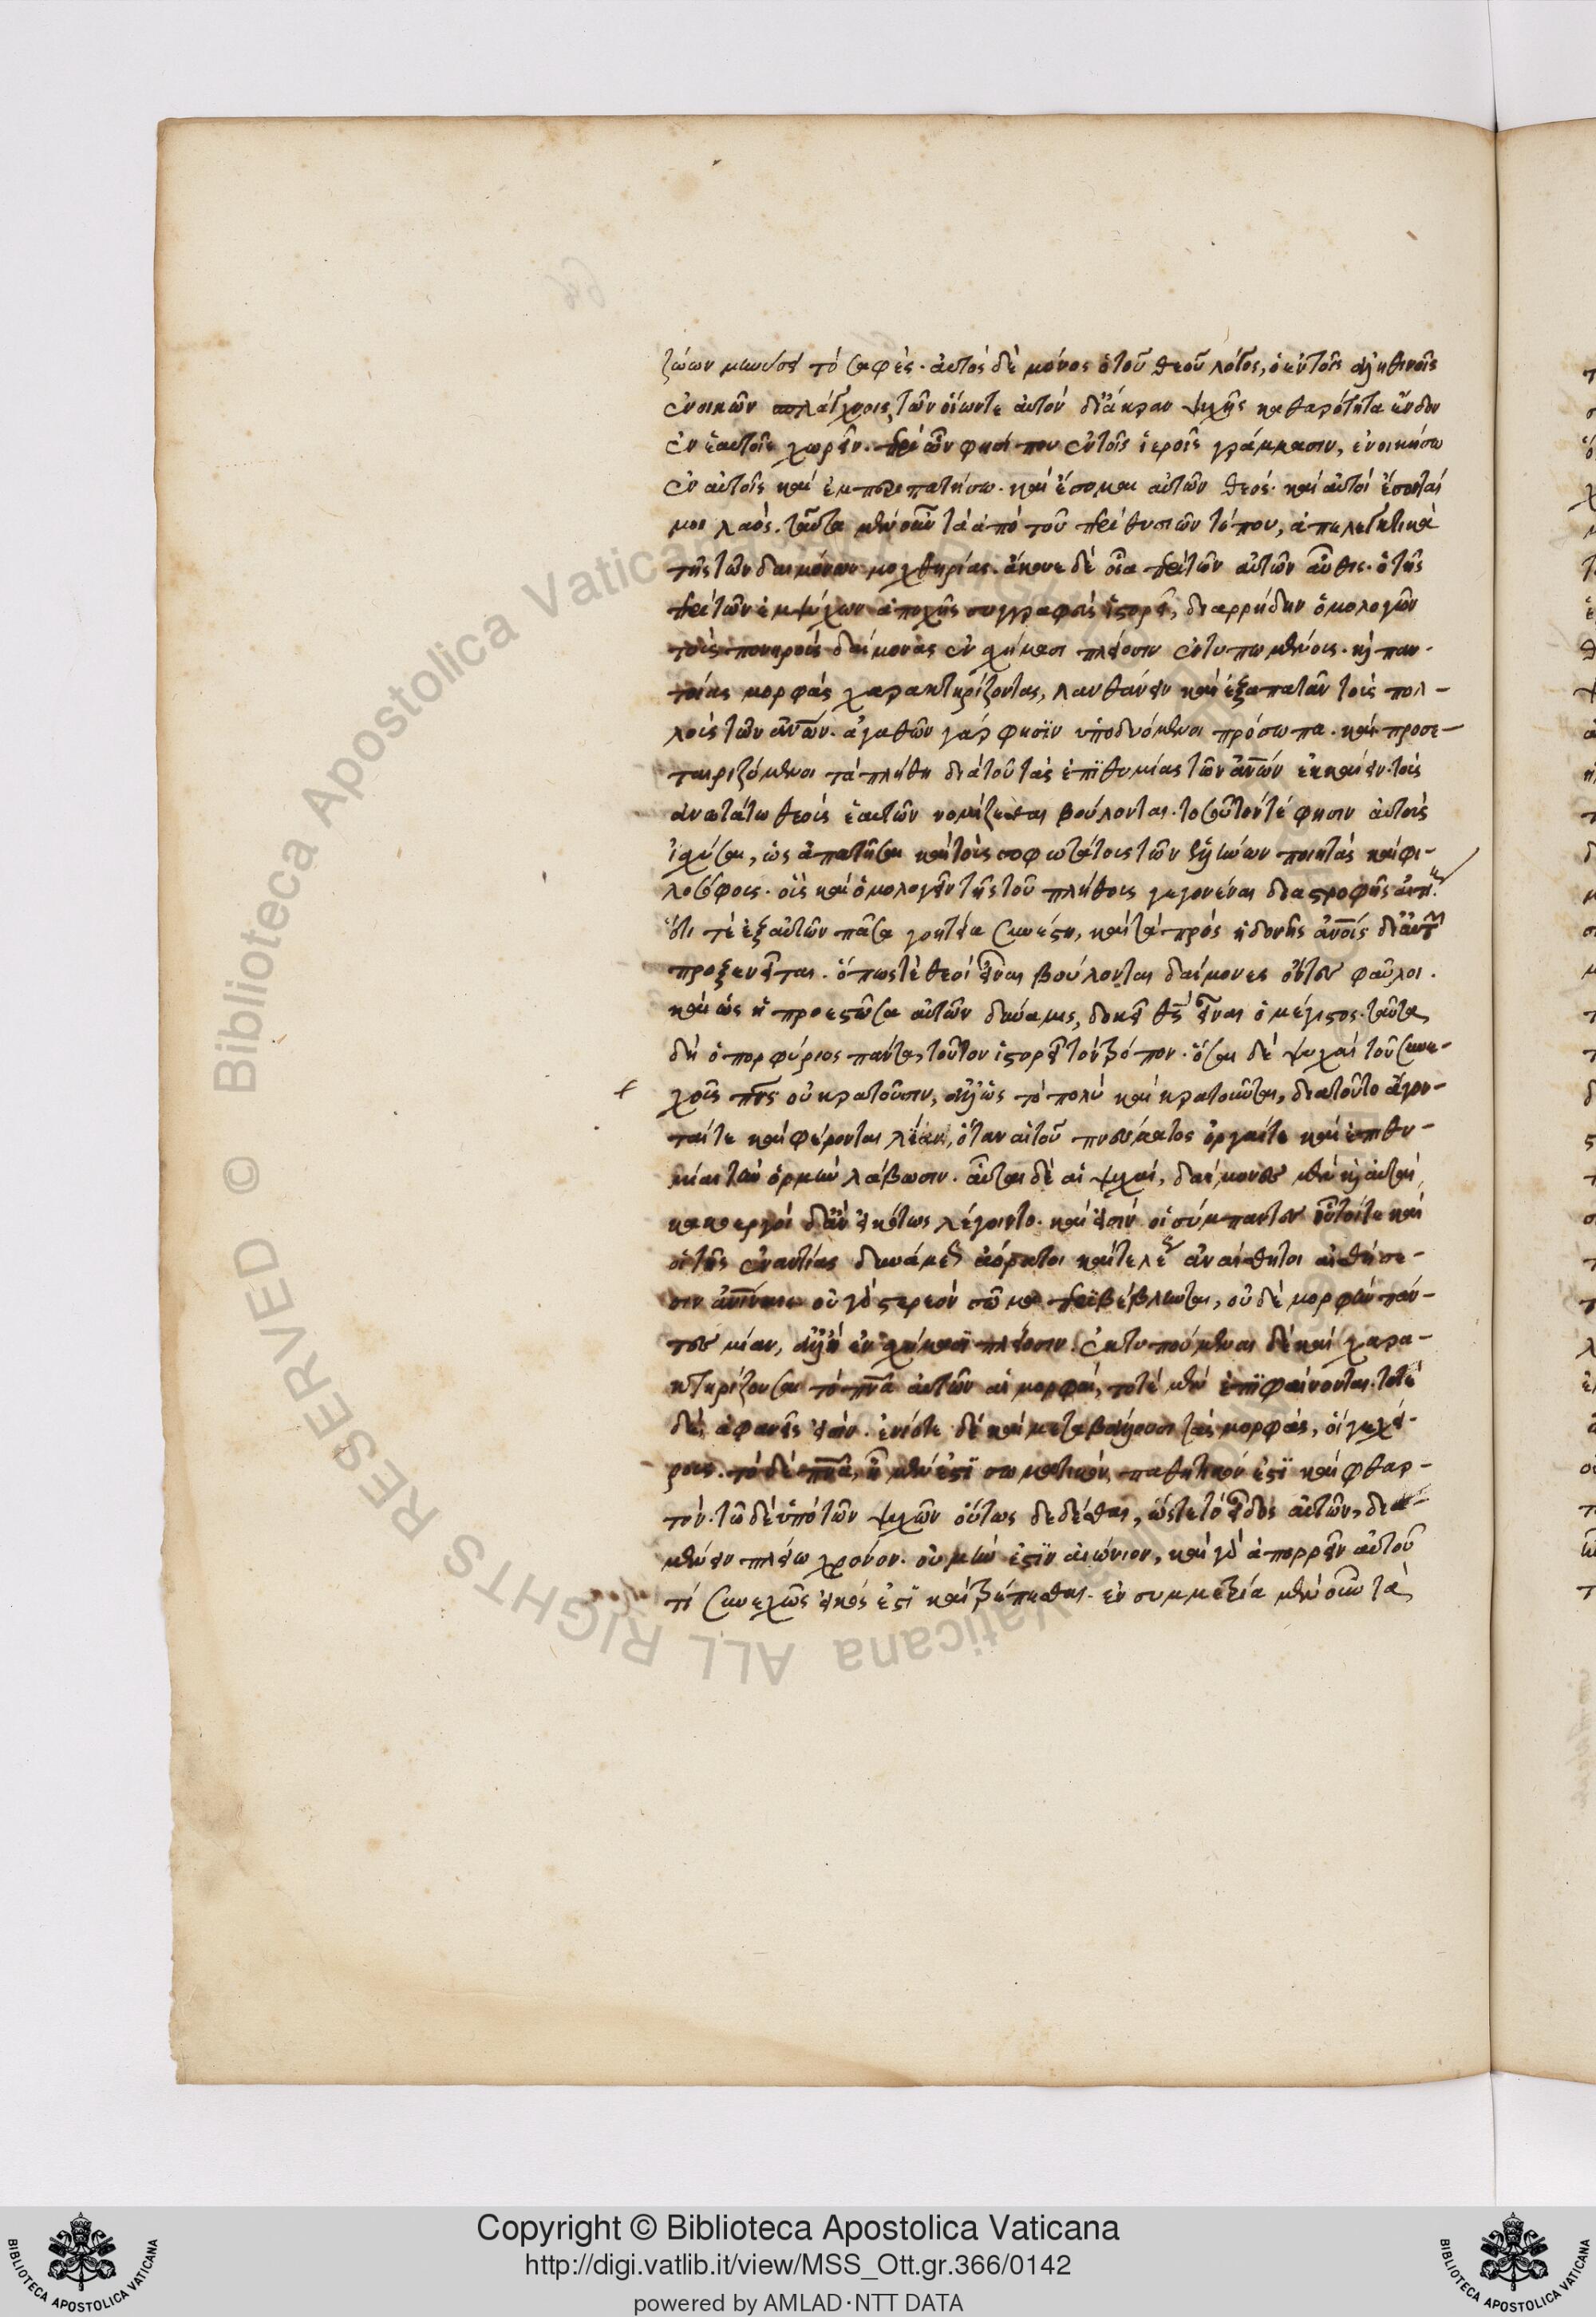 ζώων μανύον τὸ σαφές. αὐτὸς δὲ μόνος ὁ τοῦ θεοῦ λόγος, ὁ ἐν τοῖς ἀληθινοῖς
ἐνοικῶν σπλάγχνοις τῶν οἵωντε αὐτὸν δι' ἄκραν ψυχῆς καθαρότητα ἔνδον
ἐν ἑαυτοῖς χωρεῖν. περὶ ὧν φησί που ἐν τοῖς ἱεροῖς γράμμασιν, ἐνοικήσω
ἐν αὐτοῖς καὶ ἐμπεριπατήσω. καὶ ἔσομαι αὐτῶν θεός. καὶ αὐτοὶ ἔσονταί
μοι λαός. ταῦτα μὲν οὖν τὰ ἀπὸ τοῦ περὶ θυσιῶν τόπου, ἀπελεγκτικὰ
τῆς τῶν δαιμόνων μοχθηρίας. ἄκουε δὲ οἷα περὶ τῶν αὐτῶν αὖθις. ὁ τῆς
περὶ τῶν ἐμψύχων ἀποχῆς συγγραφεὺς ἱστορεῖ, διαρρήδην ὁμολογῶν
τοὺς πονηροὺς δαίμονας ἐν σχήμασι πλείοσιν ἐντυπωμένους. καὶ παν-
τοίας μορφὰς χαρακτηρίζοντας, λανθάνειν καὶ ἐξαπατᾶν τοὺς πολ-
λοὺς τῶν ἀνων. ἀγαθῶν γάρ φησϊν ὑποδυόμενοι πρόσωπα. καὶ προσε-
ταιριζόμενοι τὰ πλήθη διὰ τοῦ τὰς ἐπϊθυμίας τῶν ἀνων ἐκκαίειν. τοὺς
ἀνωτάτω θεοὺς ἑαυτῶν νομίζεσθαι βούλονται. τοσοῦτον τέ φησιν αὐτοὺς
ἰσχύσαι, ὡς ἀπατῆσαι καὶ τοὺς σοφωτάτους τῶν ἑλλήνων ποιητὰς καὶ φι-
λοσόφους. οὓς καὶ ὁμολογεῖν τῆς τοῦ πλήθους γεγονέναι διαστροφῆς αἰτί
ὅτι τὲ ἐξ αὐτῶν πᾶσα γοητεία συνέστη, καὶ τὰ πρὸς ἡδονῆς ἀνοις δι' αὐτ
προξενεῖται. ὅπως τὲ θεοὶ εἶναι βούλονται δαίμονες ὄντες φαῦλοι.
καὶ ὡς ἡ προεστῶσα αὐτῶν δύναμις, δοκεῖ θς εἶναι ὁ μέγιστος. ταῦτα
δὴ ὁ πορφύριος πάντα, τοῦτον ἱστορεῖ τὸν τρόπον. ὅσαι δὲ ψυχαὶ τοῦ συνε-
χοῦς πνς οὐ κρατοῦσιν, ἀλλ' ὡς τὸ πολὺ καὶ κρατοῦνται, διὰ τοῦτο ἄγον-
ταί τε καὶ φέρονται λϊάν, ὅταν αἱ τοῦ πνεύματος ὀργαί τε καὶ ἐπιθυ-
μίαι τὴν ὁρμὴν λάβωσιν. αὗται δὲ αἱ ψυχαί, δαίμονες μὲν καὶ αὐταὶ
κακοεργοὶ δ' ἂν εἰκότως λέγοιντο. καὶ εἰσὶν οἱ σύμπαντες οὗτοί τε καὶ
οἱ τῆς ἐναντίας δυνάμε ἀόρατοι καὶ τελέ ἀναίσθητοι αἰσθήσε-
σιν ἀνίναις οὐ γὰρ στερεὸν σῶμα περϊβέβληνται, οὐδὲ μορφὴν πάν-
τες μίαν, ἀλλ' ἐν σχήμασϊ πλείοσιν. ἐκτυπούμεναι δὲ καὶ χαρα-
κτηρίζουσαι τὸ πνα αὐτῶν αἱ μορφαί, τοτὲ μὲν ἐπϊφαίνονται. τοτὲ
δὲ, ἀφανεῖς εἰσίν. ἐνίοτε δὲ καὶ μεταβάλλουσι τὰς μορφάς, οἵ γε χεί-
ρους. τὸ δὲ πνα, ᾗ μέν ἐστϊ σωματικόν, παθητικόν ἐστϊ καὶ φθαρ-
τόν. τῶ δὲ ὑπὸ τῶν ψυχῶν οὕτως δεδέσθαι, ὥστε τὸ εἶδος αὐτῶν, δια-
μένειν πλείω χρόνον. οὐ μήν ἐστϊν αἰώνιον, καὶ γὰρ ἀπορρεῖν αὐτοῦ
τί συνεχῶς εἰκός ἐστϊ καὶ τρέπεσθαι. ἐν συμμετρία μὲν οὖν τὰ
Copyright © Biblioteca Apostolica Vaticana
http://digi.vatlib.it/view/MSS_Ott.gr.366/0142
powered by AMLAD·NTT DATA